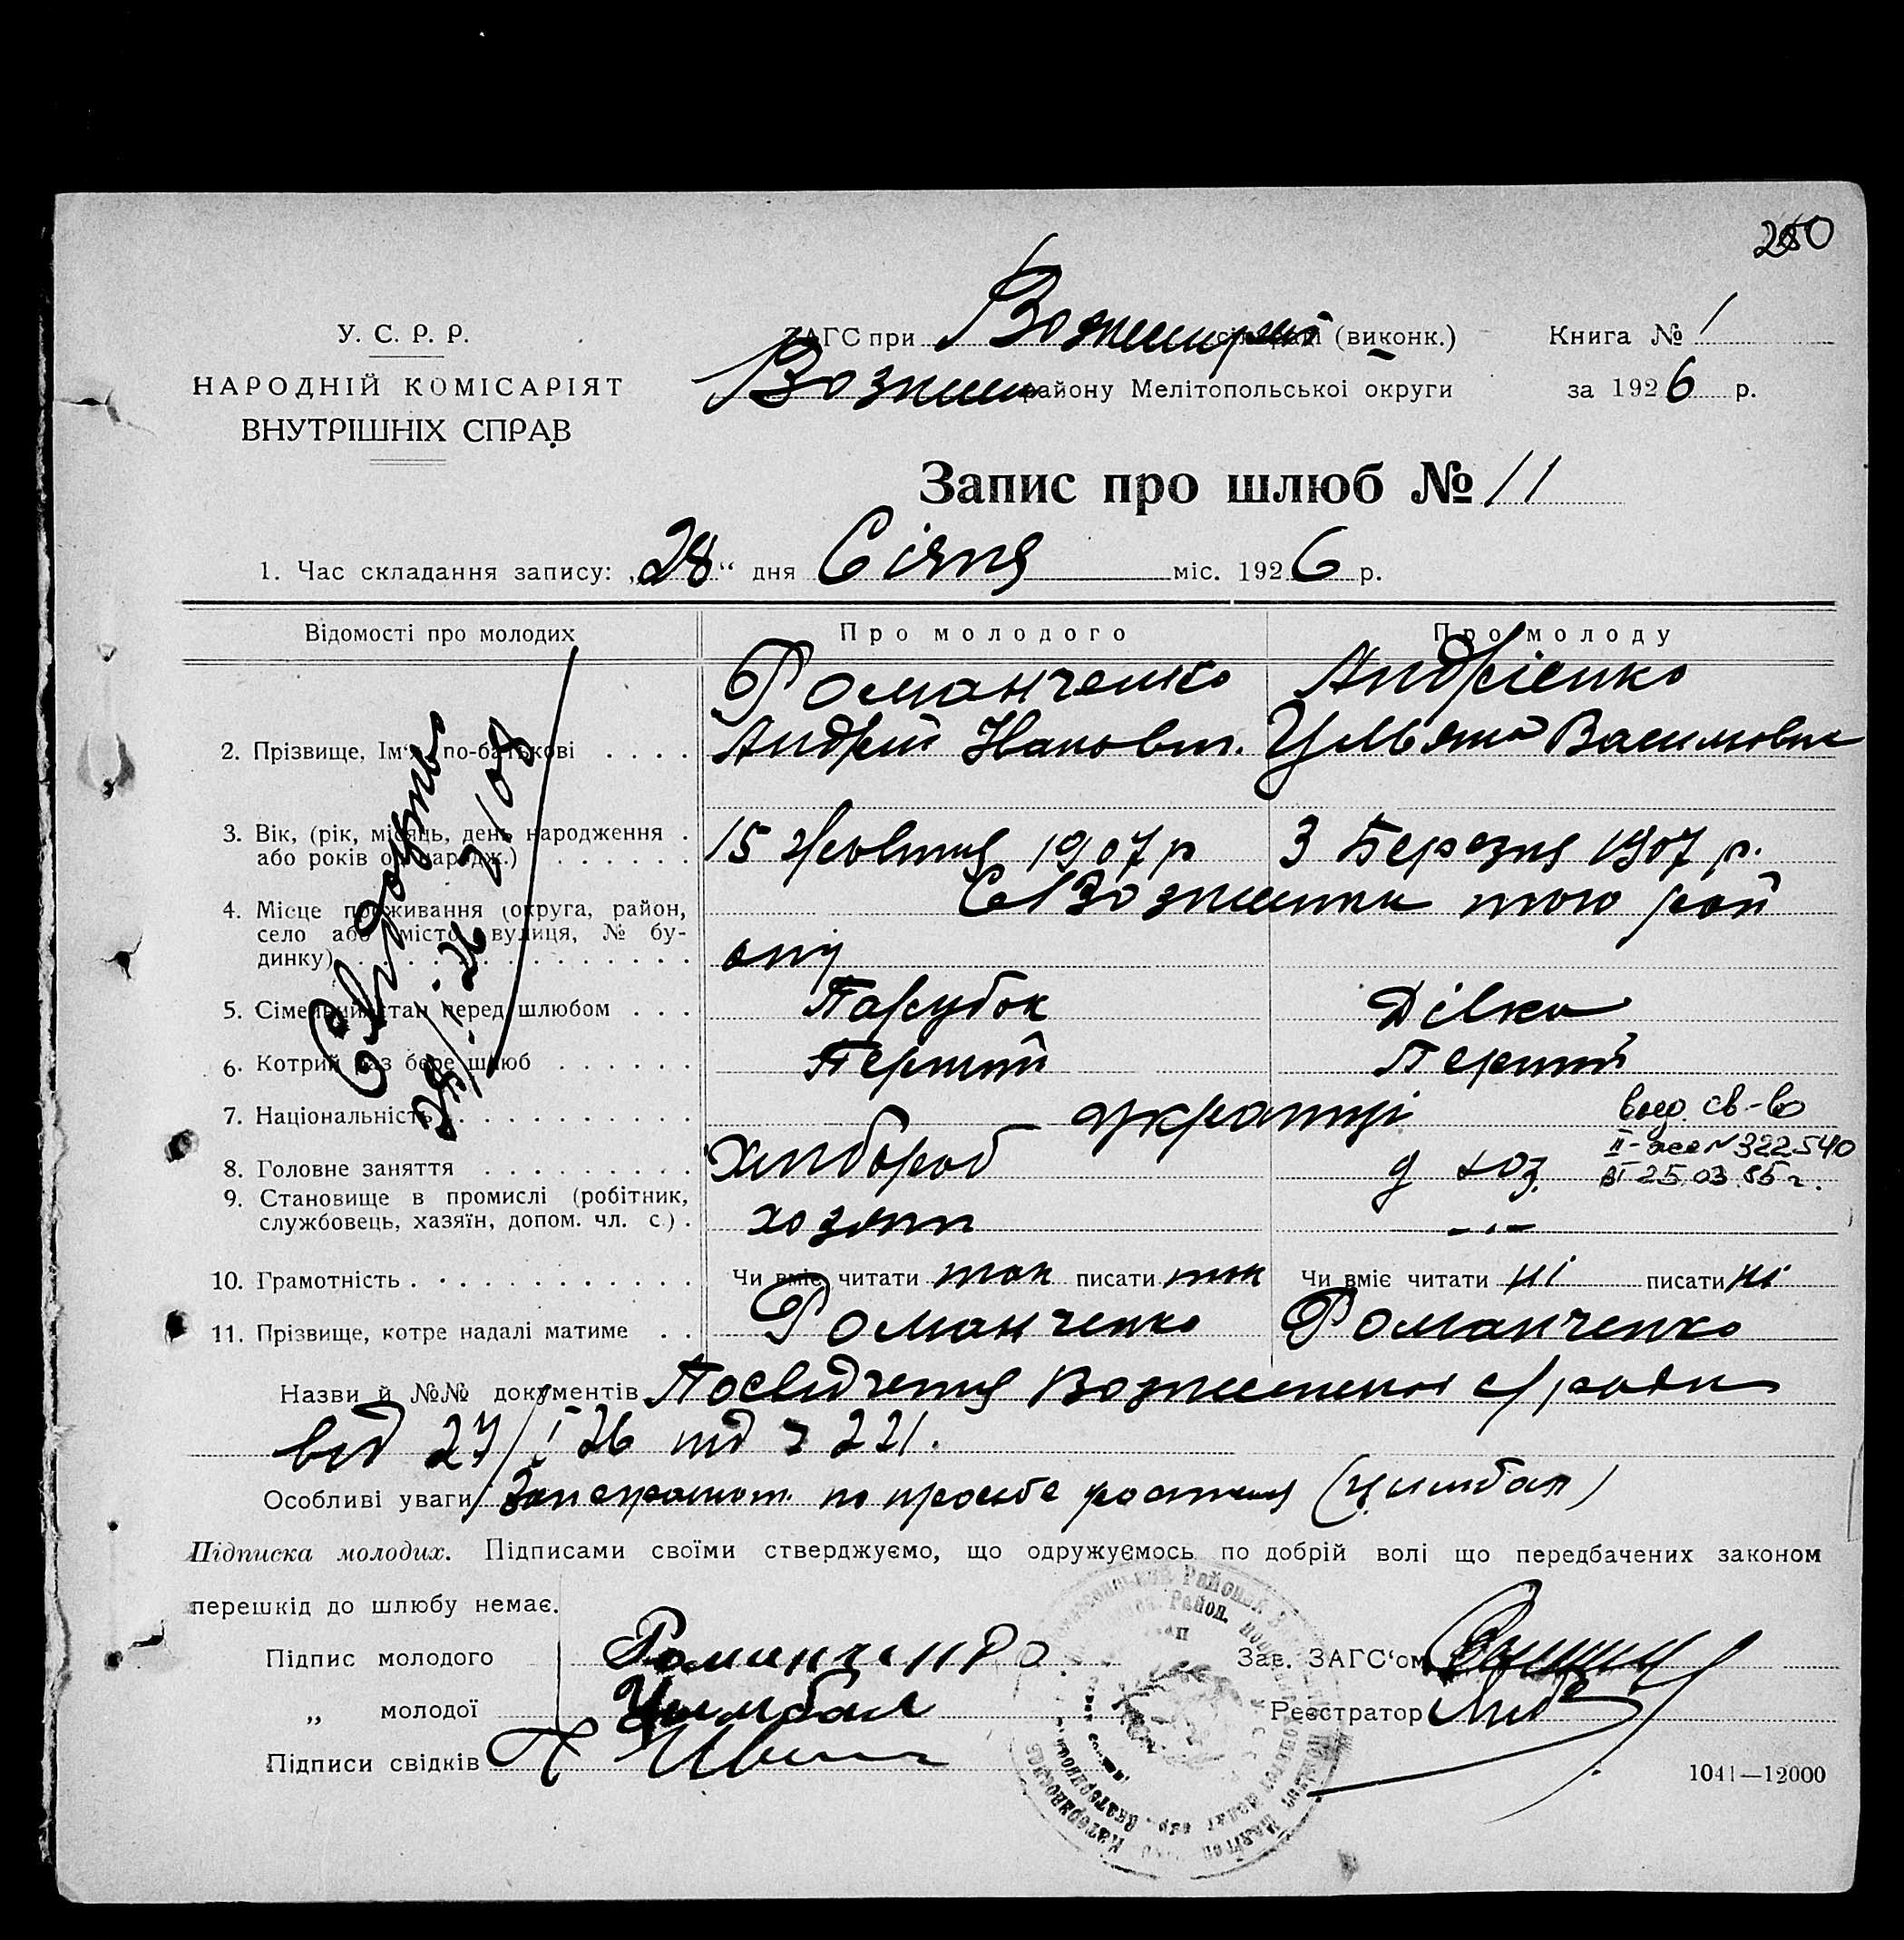 280
У. С. Р. Р.
НАРОДНІЙ КОМІСАРІЯТ
ВНУТРІШНІХ СПРАВ
ЗАГС при (виконк.)
Вознесен району Мелітопольської округи
Книга № 1
за 1926 р.
Запис про шлюб № 11
1. Час складання запису: „28“ дня Січня міс. 1926 р.
Відомості про молодих
Про молодого
Про молоду
2. Прізвище, Ім'я по-батькові
Романченко
Андрій Іванович.
Андрієнко
Ульяна Василовна
3. Вік, (рік, місяць, день народження
або років од народж.)
15 жовтня 1907 р
3 Березня 1907 р.
4. Місце проживання (округа, район,
село або місто, вулиця, № бу-
динку)
с Вознесенки того рай
ону
5. Сімейний стан перед шлюбом
Парубок
Дівка
6. Котрий раз бере шлюб
Перший
Перший
7. Національність
українці
выд. св-во
II-жс № 322540
от 25.03.85 г.
8. Головне заняття
Хлібороб
д хоз.
9. Становище в промислі (робітник,
службовець, хазяїн, допом. чл. с.)
хозяин
-"-
10. Грамотність
Чи вміє читати так писати так
Чи вміє читати ні писати ні
11. Прізвище, котре надалі матиме
Романченко
Романченко
Назви й №№ документів Посвідчення Вознесенської с/ради
від 27/I 26 під № 221.
Особливі уваги За неграмот. по просьбе (Цимбал)
Підписка молодих. Підписами своїми стверджуємо, що одружуємось по добрій волі що передбачених законом
перешкід до шлюбу немає.
Підпис молодого Романченко
„ молодої Цымбал
Підписи свідків
Зав. ЗАГС'ом
Реєстратор
1041—12000